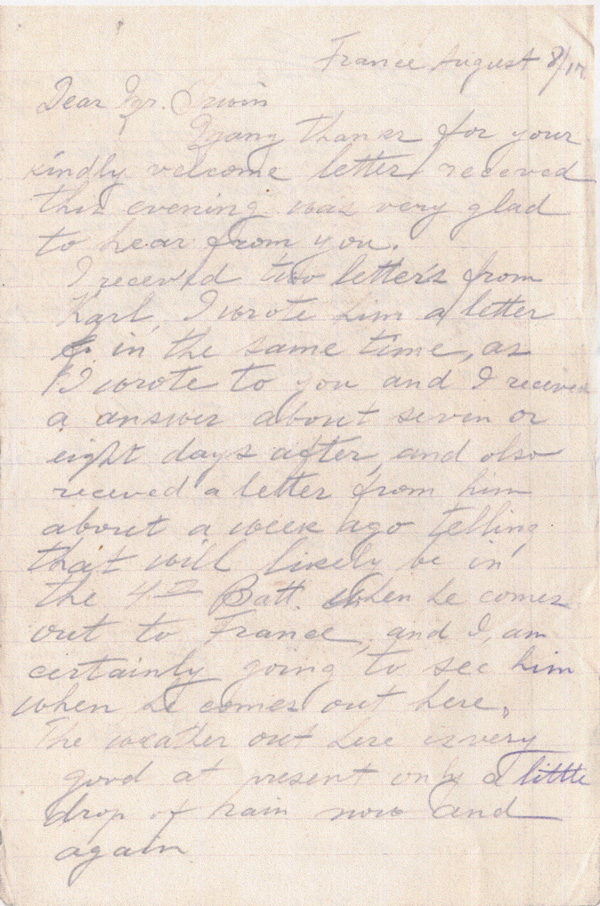 France August 8/17
Dear Mr. Irwin
Many thanks for your
kindly welcome letter receved
this evening was very glad
to hear from you.
I receved two letters from
Karl, I wrote him a letter
in the same time, as
I wrote to you and I received
a answer about seven or
eight days after, and also
receved a letter from him
about a week ago telling
that will likely be in
the 4th Batt. when he comes
out to France, and I, am
certainly going to see him
when he comes out here,
The weather out here is very
good at present only a little
drop of rain now and
again